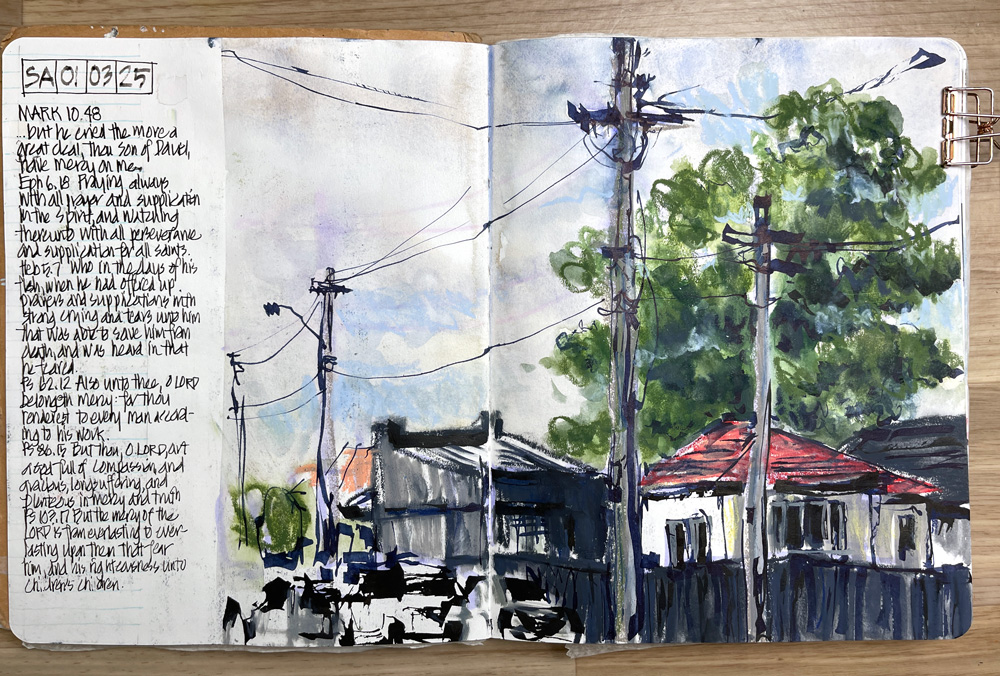 SA 01 03 25
MARK 10.48
...but he cried the more a
great deal, Thou Son of David,
have mercy on me.
Eph 6.18 Praying always
with all prayer and supplication
in the Spirit, and watching
thereunto with all perseverance
and supplication for all saints.
Heb 5.7 Who in the days of his
flesh, when he had offered up
prayers and supplications with
strong crying and tears unto him
that was able to save him from
death, and was heard in that
he feared.
Ps 62.12 Also unto thee, O LORD
belongeth mercy: for thou
renderest to every man accord-
ing to his work.
Ps 86.15 But thou, O LORD, art
a God full of compassion, and
gracious, longsuffering, and
plenteous in mercy and truth
Ps 103.17 But the mercy of the
LORD is from everlasting to ever-
lasting upon them that fear
him, and his righteousness unto
children's children.